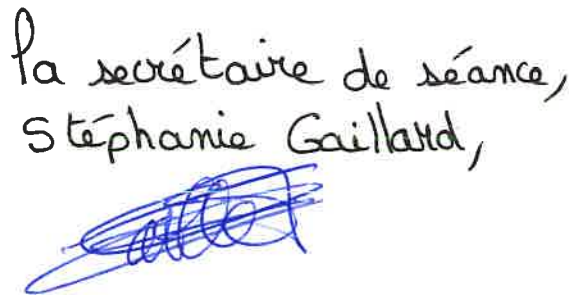 la secrétaire de séance,
Stéphanie Gaillard,